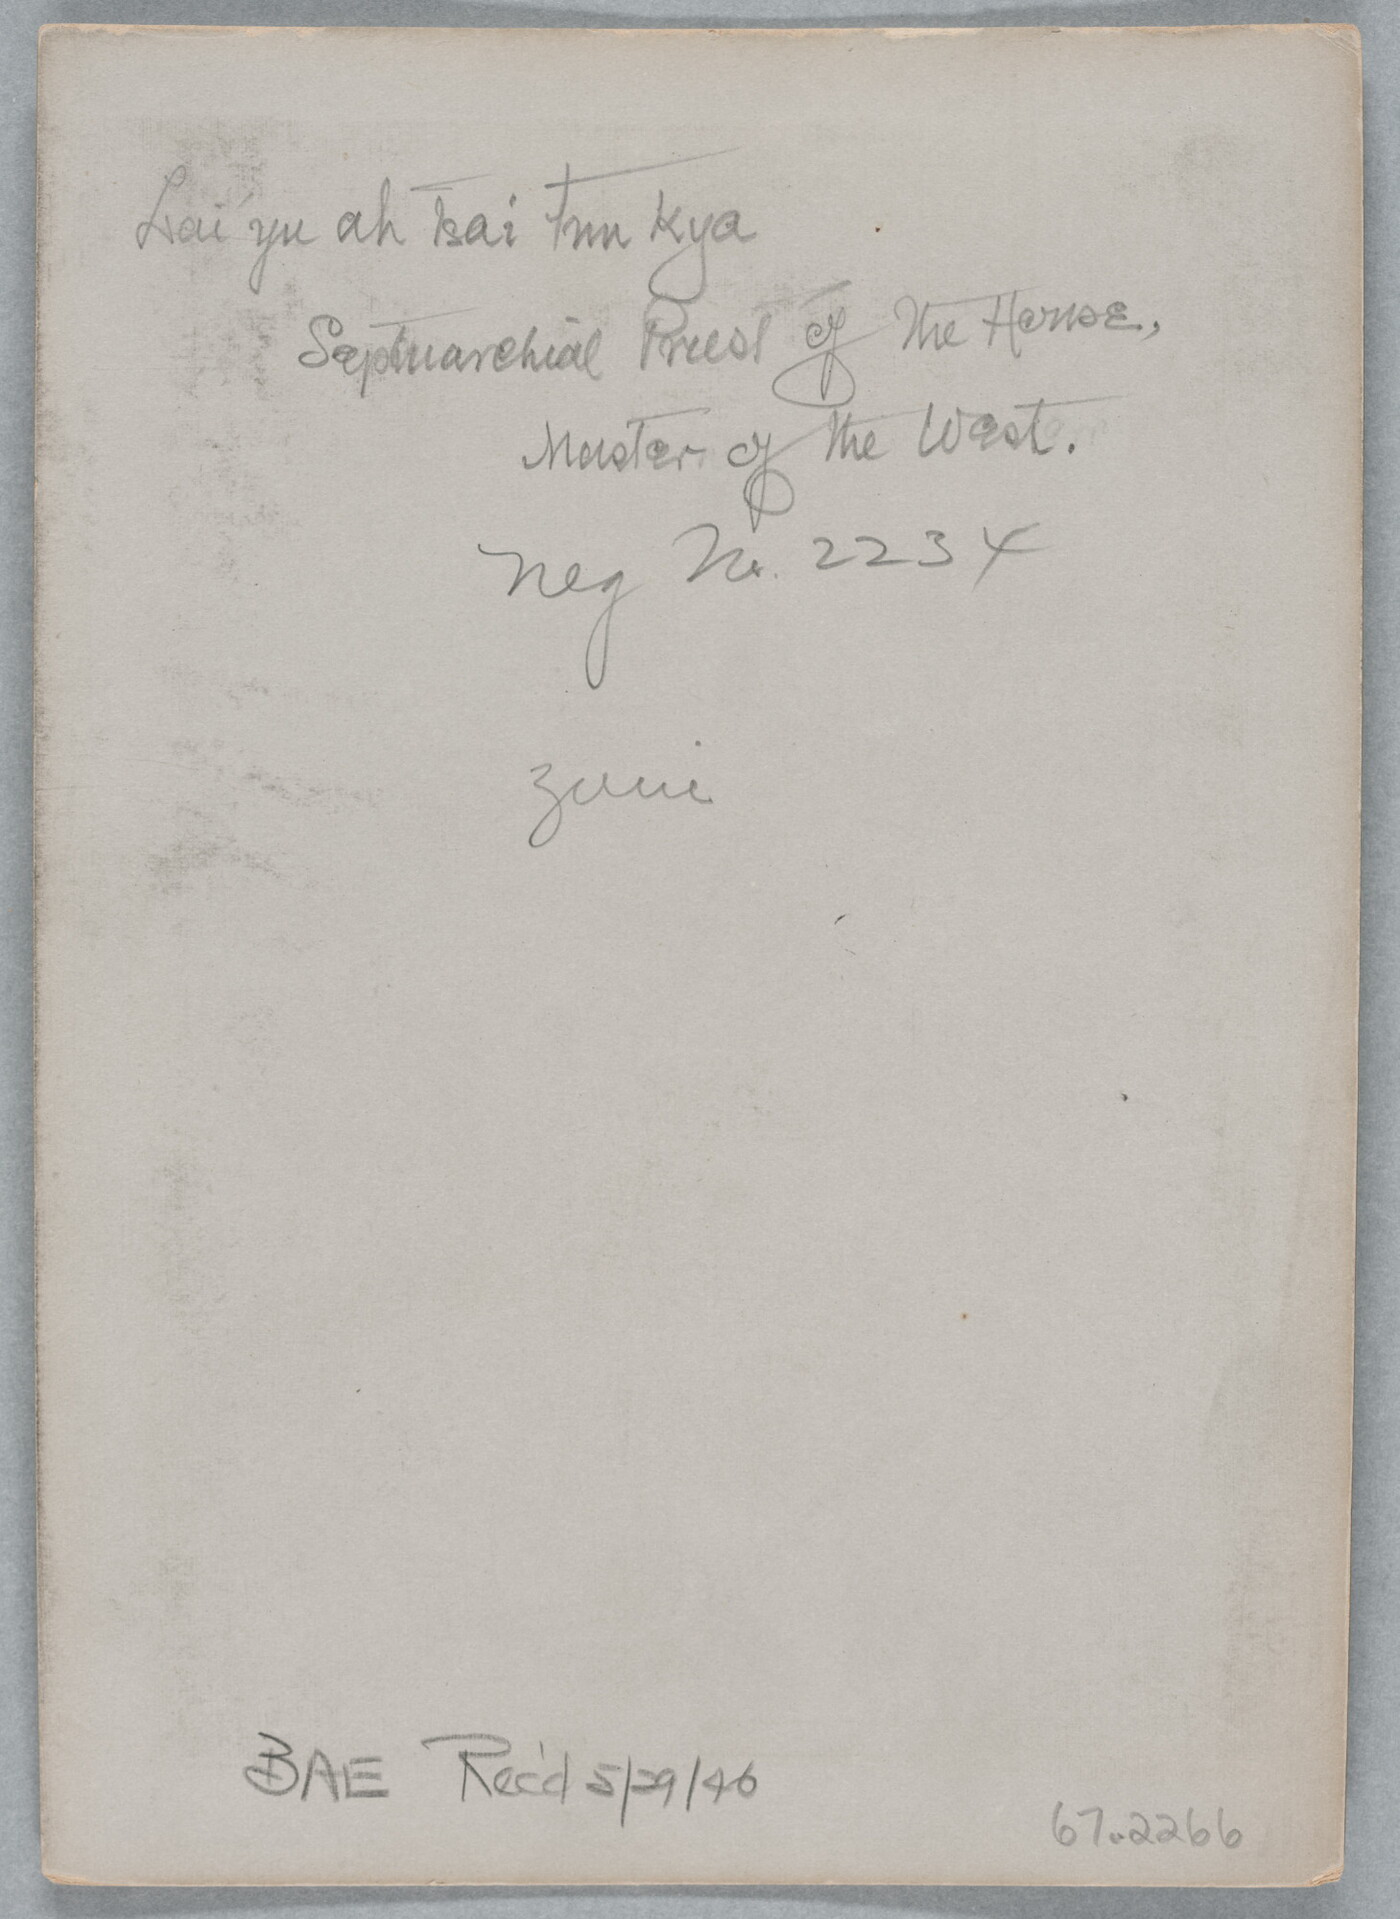 Lai yu ah tsai lun Kya
Septuarchial Priest of the House,
Master of the West.
Neg No. 2234
Zuni
BAE Rec'd 5/29/46
67.2266